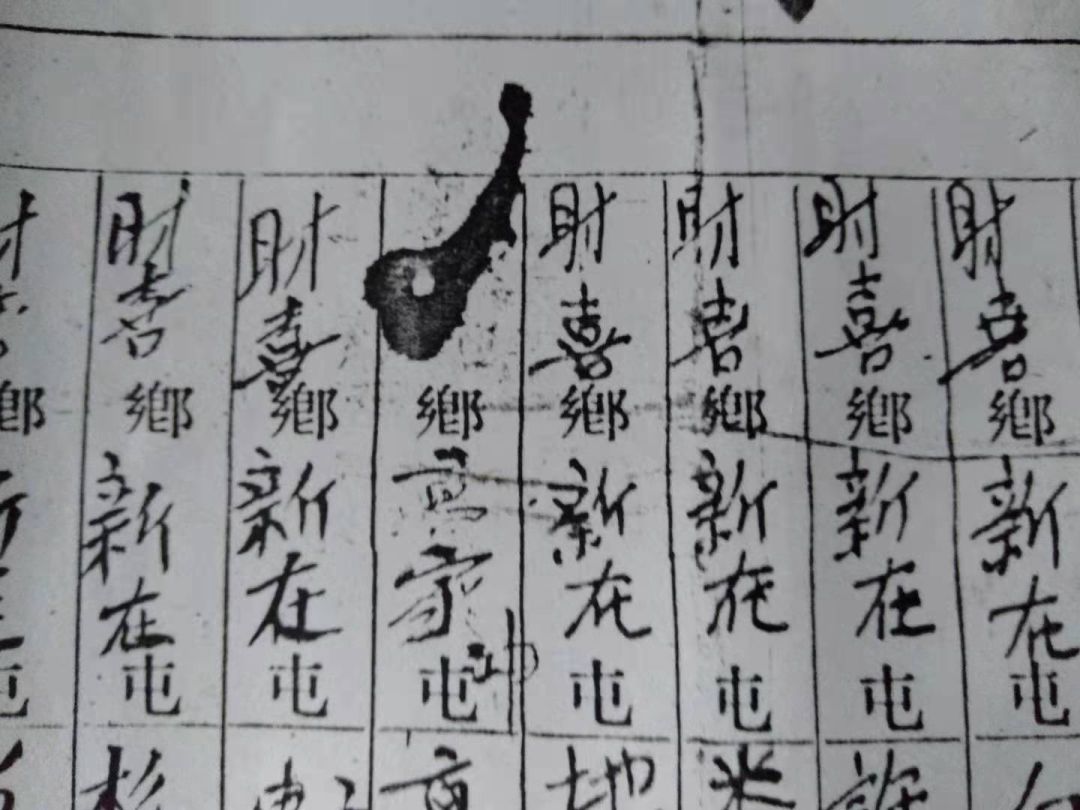 財喜鄉新在屯
財喜鄉新在屯
財喜鄉新在屯
財喜鄉新在屯地
鄉家屯
財喜鄉新在屯
財喜鄉新在屯
鄉屯